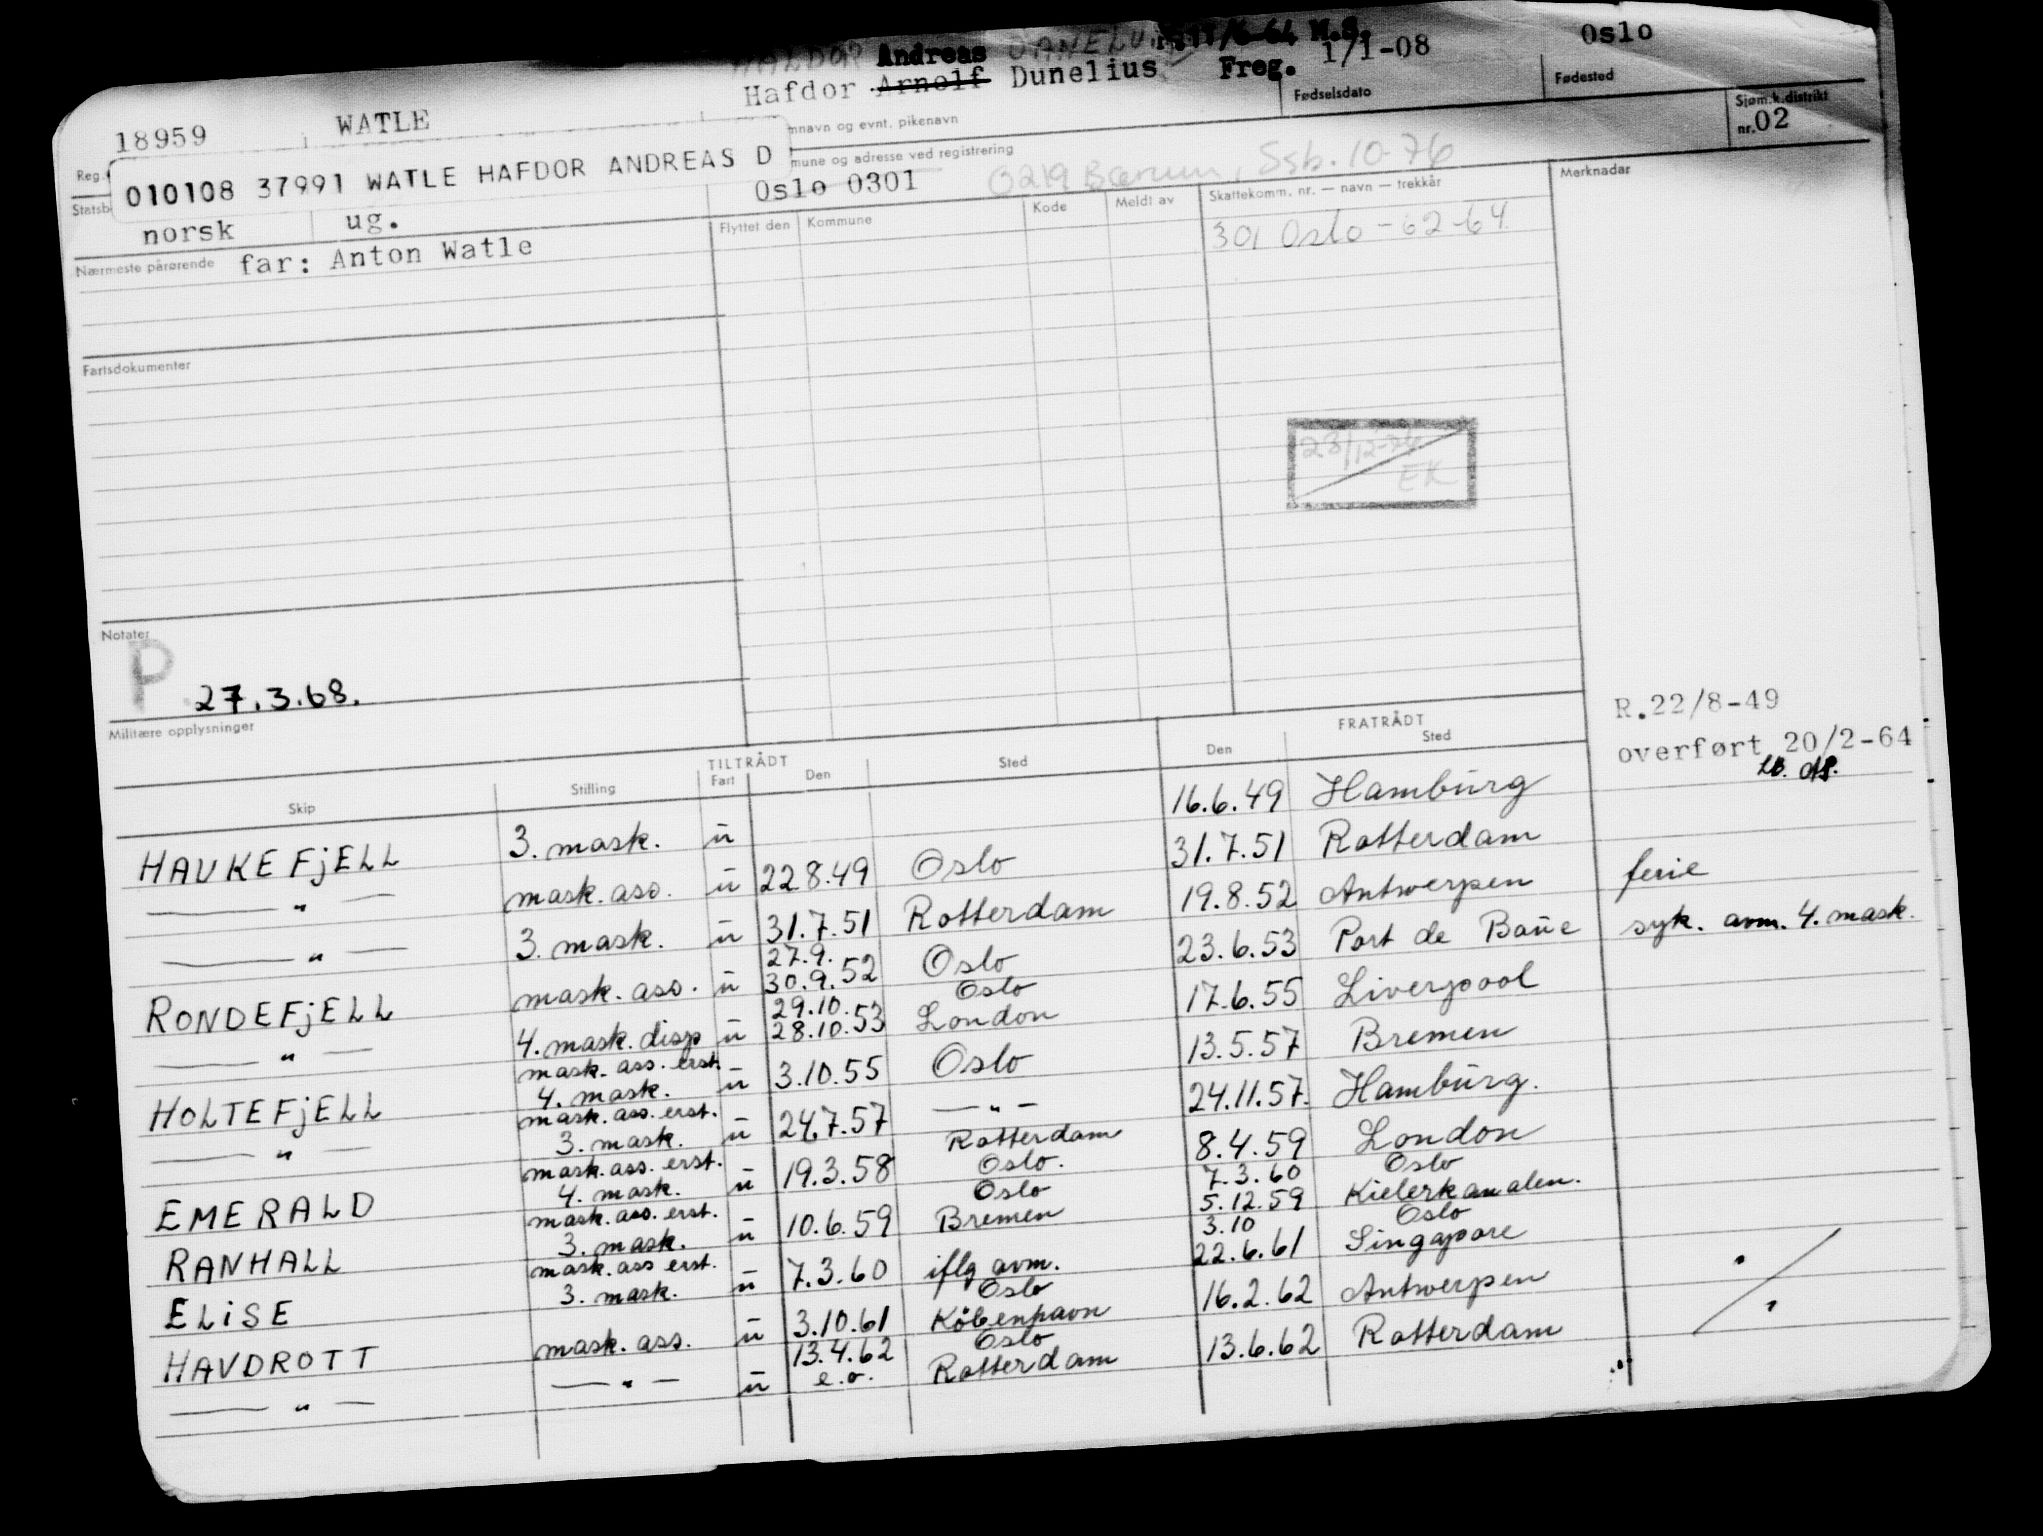 Andreas 11/6-64 M.S.
18959 WATLE Hafdor Arnolf Dunelius Freg. 1/1-08 Oslo
Fødselsdato Fødested Sjøm.k.distrikt
nr. 02
Reg. mnavn og evnt. pikenavn
010108 37991 WATLE HAFDOR ANDREAS D
mune og adresse ved registrering
Statsb Oslo 0301 0219 Bærum, Ssb. 10-76
norsk ug.
Flyttet den Kommune Kode Meldt av Skattekomm. nr. — navn — trekkår Merknadar
Nærmeste pårørende far: Anton Watle 301 Oslo - 62-64
Fartsdokumenter
23/12-76
EK
Notater
P 27.3.68.
Militære opplysninger
R.22/8-49
overført 20/2-64
TILTRÅDT FRATRÅDT
Skip Stilling Fart Den Sted Den Sted
HAUKEFjELL 3. mask. u 16.6.49 Hamburg
— " — mask. ass. u 22.8.49 Oslo 31.7.51 Rotterdam
— " — 3. mask. u 31.7.51 Rotterdam 19.8.52 Antwerpen ferie
27.9.
RONDEFjELL mask. ass. u 30.9.52 Oslo 23.6.53 Port de Boue syk. avm. 4. mask.
29.10. Oslo
— " — 4. mask. disp u 28.10.53 London 17.6.55 Liverpool
mask. ass. erst.
HOLTEFjELL 4. mask. u 3.10.55 Oslo 13.5.57 Bremen
mask. ass. erst.
— " — 3. mask. u 24.7.57 — " — 24.11.57. Hamburg.
mask. ass. erst. Rotterdam
EMERALD 4. mask. u 19.3.58 Oslo. 8.4.59 London
mask. ass. erst. Oslo 7.3.60 Oslo
RANHALL 3. mask. u 10.6.59 Bremen 5.12.59 Kielerkanalen.
mask. ass erst. 3.10 Oslo
ELiSE 3. mask. u 7.3.60 iflg avm. 22.6.61 Singapore
Oslo
HAVDROTT mask. ass. u 3.10.61 København 16.2.62 Antwerpen
13.4.62 Oslo
— " — — " — u e.o. Rotterdam 13.6.62 Rotterdam